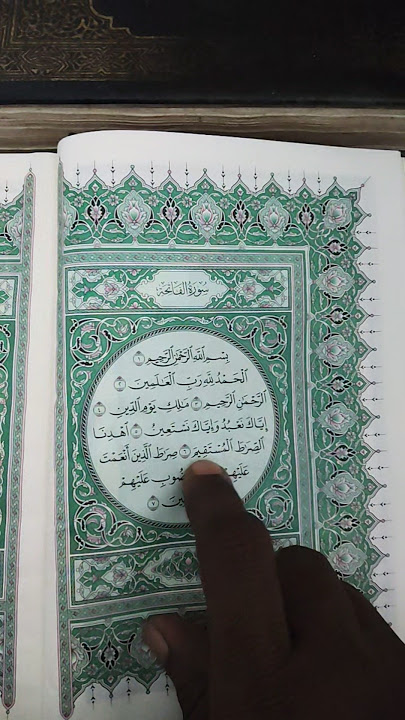 سُورَةُ الفَاتِحَةِ
بِسْمِ ٱللَّهِ ٱلرَّحْمَٰنِ ٱلرَّحِيمِ ١
ٱلْحَمْدُ لِلَّهِ رَبِّ ٱلْعَٰلَمِينَ ٢
ٱلرَّحْمَٰنِ ٱلرَّحِيمِ ٣ مَٰلِكِ يَوْمِ ٱلدِّينِ ٤
إِيَّاكَ نَعْبُدُ وَإِيَّاكَ نَسْتَعِينُ ٥ ٱهْدِنَا
ٱلصِّرَٰطَ ٱلْمُسْتَقِيمَ ٦ صِرَٰطَ ٱلَّذِينَ أَنْعَمْتَ
عَلَيْهِمْ عَلَيْهِمْ
٧